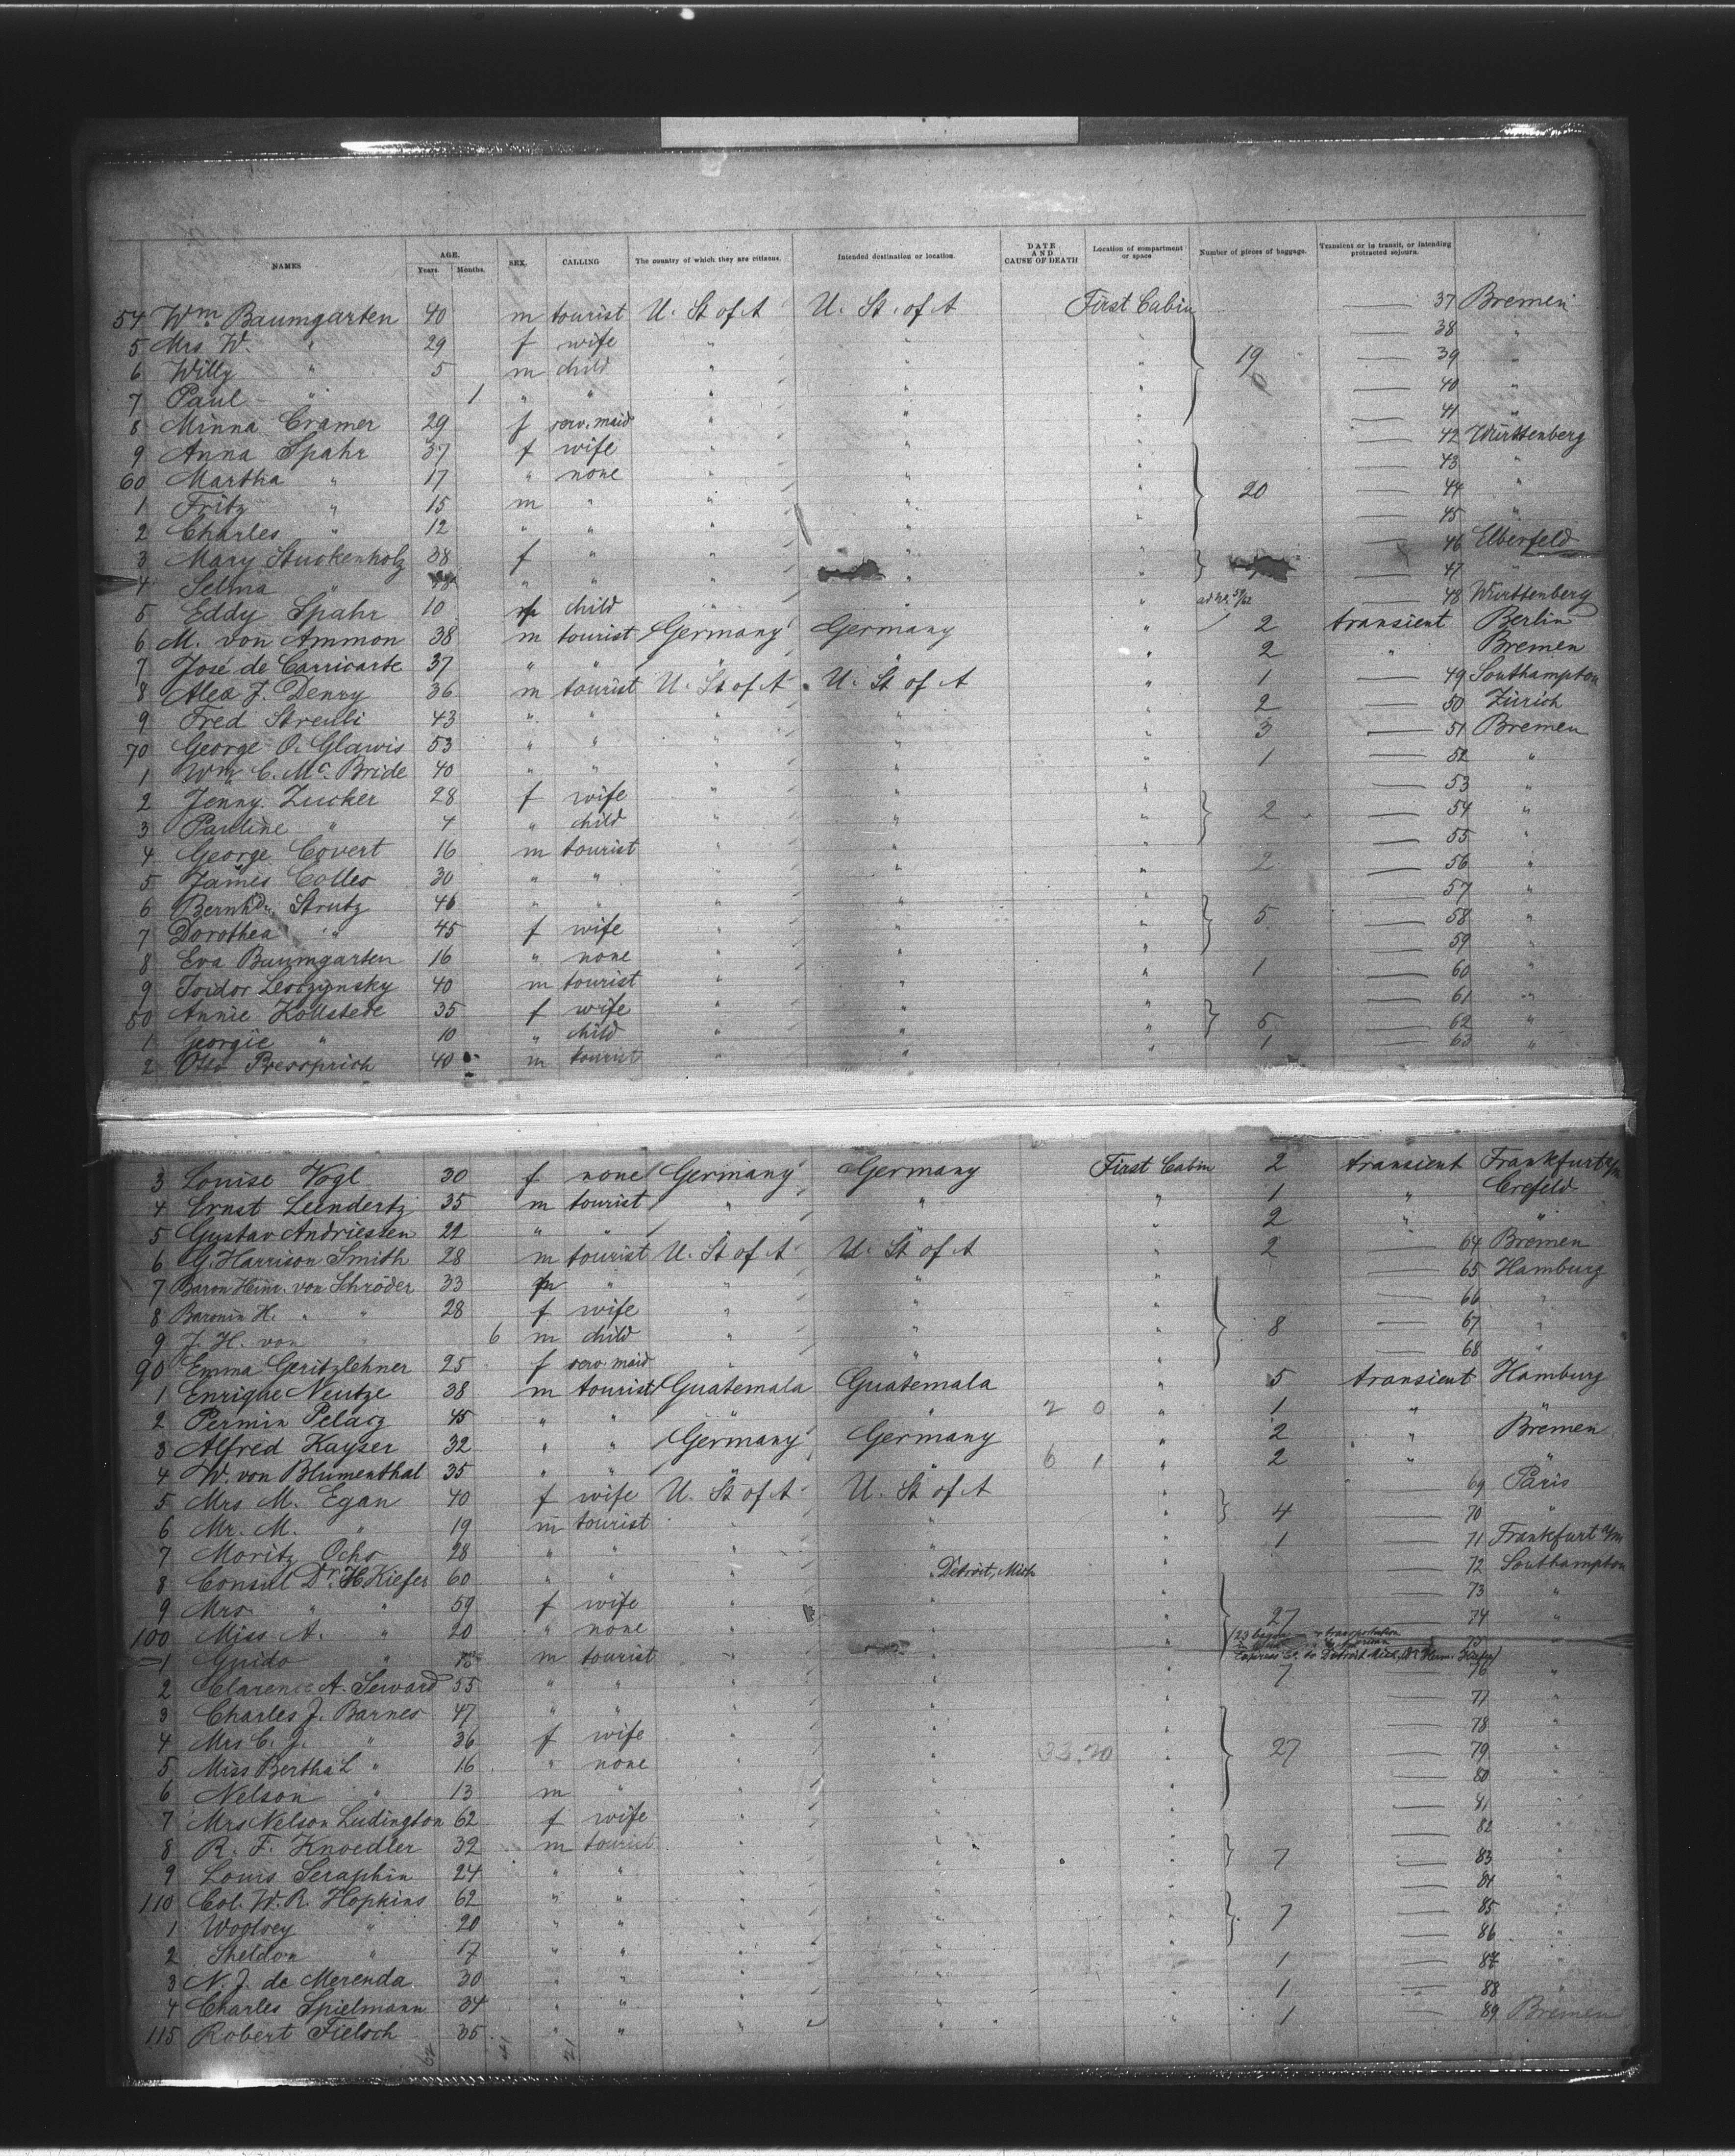 NAMES AGE. Years. Months. SEX. CALLING The country of which they are citizens. Intended destination or location. DATE AND CAUSE OF DEATH Location of compartment or space Number of pieces of baggage. Transient or in transit, or intending protracted sojourn.
54 Wm Baumgarten 40 m tourist U. St of A U. St. of A First Cabin — 37 Bremen
5 Mrs W. " 29 f wife " " " — 38 "
6 Willy " 5 m child " " " 19 — 39 "
7 Paul " 1 " " " " " — 40 "
8 Minna Cramer 29 f serv. maid " " " — 41 "
9 Anna Spahr 37 f wife " " " — 42 Württenberg
60 Martha " 17 " none " " " — 43 "
1 Fritz " 15 m " " " " 20 — 44 "
2 Charles " 12 " " " " " — 45 "
3 Mary Stuckenholz 38 f " " " " — 46 Elberfeld
4 Selma " 48 " " " " " — 47 "
5 Eddy Spahr 10 child " " " ad No. 59/62 — 48 Württenberg
6 M. von Ammon 38 m tourist Germany Germany " 2 transient Berlin
7 José de Carricarte 37 " " " " " 2 " Bremen
8 Alex J. Denry 36 m tourist U. St of A U. St of A " 1 — 49 Southampton
9 Fred Streuli 43 " " " " " 2 — 50 Zürich
70 George O. Glawis 53 " " " " " 3 — 51 Bremen
1 Wm C. Mc Bride 40 " " " " " 1 — 52 "
2 Jenny Zucker 28 f wife " " " — 53 "
3 Pauline " 4 " child " " " 2 — 54 "
4 George Covert 16 m tourist " " " — 55 "
5 James Colles 30 " " " " " 2 — 56 "
6 Bernhd Strutz 46 " " " " " — 57 "
7 Dorothea " 45 f wife " " " 5 — 58 "
8 Eva Baumgarten 16 " none " " " — 59 "
9 Isidor Lesczynsky 40 m tourist " " " 1 — 60 "
80 Annie Kollstede 35 f wife " " " — 61 "
1 Georgie " 10 " child " " " 5 — 62 "
2 Otto Pressprich 40 m tourist " " " 1 — 63 "
3 Louise Vogl 30 f none Germany Germany First Cabin 2 transient Frankfurt a/m
4 Ernst Leendertz 35 m tourist " " " 1 " Crefeld
5 Gustav Andriessen 22 " " " " " 2 " "
6 G. Harrison Smith 28 m tourist U. St of A U. St of A " 2 — 64 Bremen
7 Baron Heinr. von Schröder 33 m " " " " — 65 Hamburg
8 Baronin H. " " 28 f wife " " " — 66 "
9 J. H. von " 6 m child " " " 8 — 67 "
90 Emma Geritzlehner 25 f serv. maid " " " — 68 "
1 Enrique Neutze 38 m tourist Guatemala Guatemala " 5 transient Hamburg
2 Permin Pelaez 45 " " " " 2 0 " 1 " "
3 Alfred Kayser 32 " " Germany Germany " 2 " Bremen
4 W. von Blumenthal 35 " " " " 6 1 " 2 " "
5 Mrs M. Egan 40 f wife U. St of A U. St of A " 69 Paris
6 Mr. M. " 19 m tourist " " " 4 — 70 "
7 Moritz Ochs 28 " " " " " 1 — 71 Frankfurt a/m
8 Consul Dr. H. Kiefer 60 " " " Detroit, Mich " — 72 Southampton
9 Mrs " " 59 f wife " " " — 73 "
100 Miss A. " 20 " none " " " 27 — 74 "
1 Guido " m tourist " " " 75 "
transportation
Express Co. to Detroit Mich. Dr. Herm. Kiefer
2 Clarence A. Seward 55 " " " " " 7 — 76 "
3 Charles J. Barnes 47 " " " " " — 77 "
4 Mrs C. J. " 36 f wife " " " — 78 "
5 Miss Bertha L " 16 " none " " 33.20 " 27 — 79 "
6 Nelson " 13 m " " " " — 80 "
7 Mrs Nelson Ludington 62 f wife " " " — 81 "
8 R. F. Knoedler 32 m tourist " " " — 82 "
9 Louis Seraphin 24 " " " " " 7 — 83 "
110 Col. W. R. Hopkins 62 " " " " " — 84 "
1 Woolsey " 20 " " " " " 7 — 85 "
2 Sheldon " 17 " " " " " — 86 "
3 N. J. de Merenda 30 " " " " " 1 — 87 "
4 Charles Spielmann 34 " " " " " 1 — 88 "
115 Robert Fielsch 35 " " " " " 1 — 89 Bremen